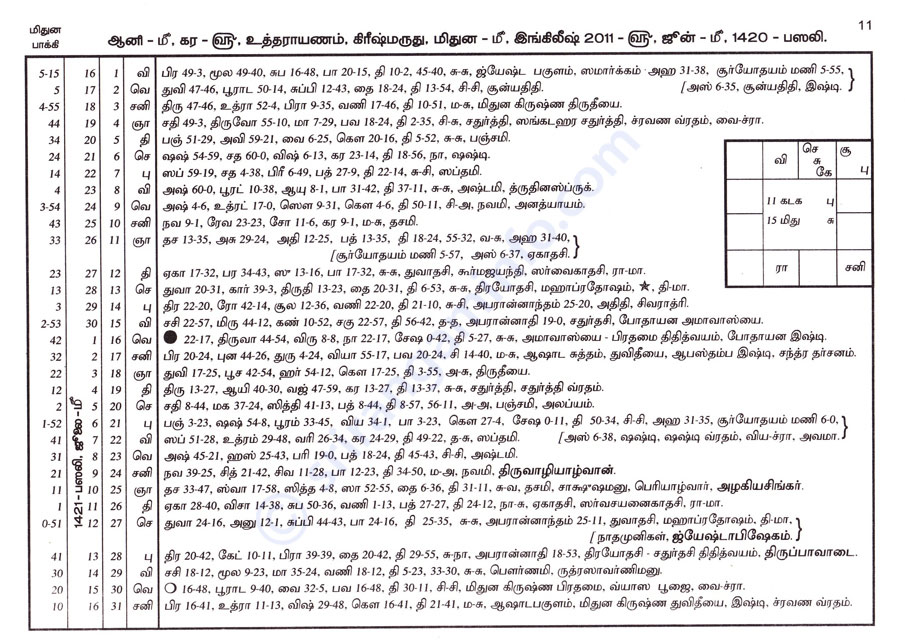 11
மிதுன பாக்கி
ஆனி - மீ, கர - ௵, உத்தராயணம், கிரீஷ்மருது, மிதுன - மீ, இங்கிலீஷ் 2011 - ௵, ஜூன் - மீ, 1420 - பஸலி.
5-15 16 1 வி பிர 49-3, மூல 49-40, சுப 16-48, பா 20-15, தி 10-2, 45-40, சு-சு, ஜ்யேஷ்ட பகுளம், ஸமார்க்கம் அஹ 31-38, சூர்யோதயம் மணி 5-55,
5 17 2 வெ துவி 47-46, பூராட 50-14, சுப்பி 12-43, தை 18-24, தி 13-54, சி-சி, சூன்யதிதி. [அஸ் 6-35, சூன்யதிதி, இஷ்டி.
4-55 18 3 சனி திரு 47-46, உத்ரா 52-4, பிரா 9-35, வணி 17-46, தி 10-51, ம-சு, மிதுன கிருஷ்ண திருதீயை.
44 19 4 ஞா சதி 49-3, திருவோ 55-10, மா 7-29, பவ 18-24, தி 2-35, சி-சு, சதுர்த்தி, ஸங்கடஹர சதுர்த்தி, ச்ரவண வ்ரதம், வை-ச்ரா.
34 20 5 தி பஞ் 51-29, அவி 59-21, வை 6-25, கௌ 20-16, தி 5-52, சு-சு, பஞ்சமி.
24 21 6 செ ஷஷ் 54-59, சத 60-0, விஷ் 6-13, கர 23-14, தி 18-56, நா, ஷஷ்டி.
14 22 7 பு ஸப் 59-19, சத 4-38, பிரீ 6-49, பத் 27-9, தி 22-14, சு-சி, ஸப்தமி.
4 23 8 வி அஷ் 60-0, பூரட் 10-38, ஆயு 8-1, பா 31-42, தி 37-11, சு-சு, அஷ்டமி, த்ருதினஸ்ப்ருக்.
3-54 24 9 வெ அஷ் 4-6, உத்ரட் 17-0, ஸௌ 9-31, கௌ 4-6, தி 50-11, சி-அ, நவமி, அனத்யாயம்.
43 25 10 சனி நவ 9-1, ரேவ 23-23, சோ 11-6, கர 9-1, ம-சு, தசமி.
33 26 11 ஞா தச 13-35, அசு 29-24, அதி 12-25, பத் 13-35, தி 18-24, 55-32, வ-சு, அஹ 31-40,
[சூர்யோதயம் மணி 5-57, அஸ் 6-37, ஏகாதசி.
வி செ சு கே சூ பு
11 கடக பு
15 மிது சு
ரா சனி
23 27 12 தி ஏகா 17-32, பர 34-43, ஸு 13-16, பா 17-32, சு-சு, துவாதசி, கூர்மஜயந்தி, ஸர்வைகாதசி, ரா-மா.
13 28 13 செ துவா 20-31, கார் 39-3, திருதி 13-23, தை 20-31, தி 6-53, சு-சு, திரயோதசி, மஹாப்ரதோஷம், ★, தி-மா.
3 29 14 பு திர 22-20, ரோ 42-14, சூல 12-36, வணி 22-20, தி 21-10, சு-சி, அபரான்னாந்தம் 25-20, அதிதி, சிவராத்ரி.
2-53 30 15 வி சசி 22-57, மிரு 44-12, கண் 10-52, சகு 22-57, தி 56-42, த-த, அபரான்னாதி 19-0, சதுர்தசி, போதாயன அமாவாஸ்யை.
42 1 16 வெ ● 22-17, திருவா 44-54, விரு 8-8, நா 22-17, சேஷ 0-42, தி 5-27, சு-சு, அமாவாஸ்யை - பிரதமை திதித்வயம், போதாயன இஷ்டி.
32 2 17 சனி பிர 20-24, புன 44-26, துரு 4-24, வியா 55-17, பவ 20-24, சி 14-40, ம-சு, ஆஷாட சுத்தம், துவிதீயை, ஆபஸ்தம்ப இஷ்டி, சந்த்ர தர்சனம்.
22 3 18 ஞா துவி 17-25, பூச 42-54, ஹர் 54-12, கௌ 17-25, தி 3-55, அ-சு, திருதீயை.
12 4 19 தி திரு 13-27, ஆயி 40-30, வஜ் 47-59, கர 13-27, தி 13-37, சு-சு, சதுர்த்தி, சதுர்த்தி வ்ரதம்.
2 5 20 செ சதி 8-44, மக 37-24, ஸித்தி 41-13, பத் 8-44, தி 8-57, 56-11, அ-அ, பஞ்சமி, அலப்யம்.
1-52 6 21 பு பஞ் 3-23, ஷஷ் 54-8, பூரம் 33-45, விய 34-1, பா 3-23, கௌ 27-4, சேஷ 0-11, தி 50-34, சி-சி, அஹ 31-35, சூர்யோதயம் மணி 6-0,
41 7 22 வி ஸப் 51-28, உத்ரம் 29-48, வரி 26-34, கர 24-29, தி 49-22, த-சு, ஸப்தமி. [அஸ் 6-38, ஷஷ்டி, ஷஷ்டி வ்ரதம், விய-ச்ரா, அவமா.
31 8 23 வெ அஷ் 45-21, ஹஸ் 25-43, பரி 19-0, பத் 18-24, தி 45-43, சி-சி, அஷ்டமி.
21 9 24 சனி நவ 39-25, சித் 21-42, சிவ 11-28, பா 12-23, தி 34-50, ம-அ, நவமி, திருவாழியாழ்வான்.
11 10 25 ஞா தச 33-47, ஸ்வா 17-58, ஸித்த 4-8, ஸா 52-55, தை 6-36, தி 31-11, சு-வ, தசமி, சாக்ஷுஷமனு, பெரியாழ்வார், அழகியசிங்கர்.
1 11 26 தி ஏகா 28-40, விசா 14-38, சுப 50-36, வணி 1-13, பத் 27-27, தி 24-12, நா-சு, ஏகாதசி, ஸர்வசயனைகாதசி, ரா-மா.
0-51 12 27 செ துவா 24-16, அனு 12-1, சுப்பி 44-43, பா 24-16, தி 25-35, சு-சு, அபரான்னாந்தம் 25-11, துவாதசி, மஹாப்ரதோஷம், தி-மா,
[நாதமுனிகள், ஜ்யேஷ்டாபிஷேகம்.
41 13 28 பு திர 20-42, கேட் 10-11, பிரா 39-39, தை 20-42, தி 29-55, சு-நா, அபரான்னாதி 18-53, திரயோதசி - சதுர்தசி திதித்வயம், திருப்பாவாடை.
30 14 29 வி சசி 18-12, மூல 9-23, மா 35-24, வணி 18-12, தி 5-23, 33-30, சு-சு, பௌர்ணமி, ருத்ரஸாவர்ணிமனு.
20 15 30 வெ ○ 16-48, பூராட 9-40, வை 32-5, பவ 16-48, தி 30-11, சி-சி, மிதுன கிருஷ்ண பிரதமை, வ்யாஸ பூஜை, வை-ச்ரா.
10 16 31 சனி பிர 16-41, உத்ரா 11-13, விஷ் 29-48, கௌ 16-41, தி 21-41, ம-சு, ஆஷாடபகுளம், மிதுன கிருஷ்ண துவிதீயை, இஷ்டி, ச்ரவண வ்ரதம்.
1421-பஸலி, ஜூலை-மீ